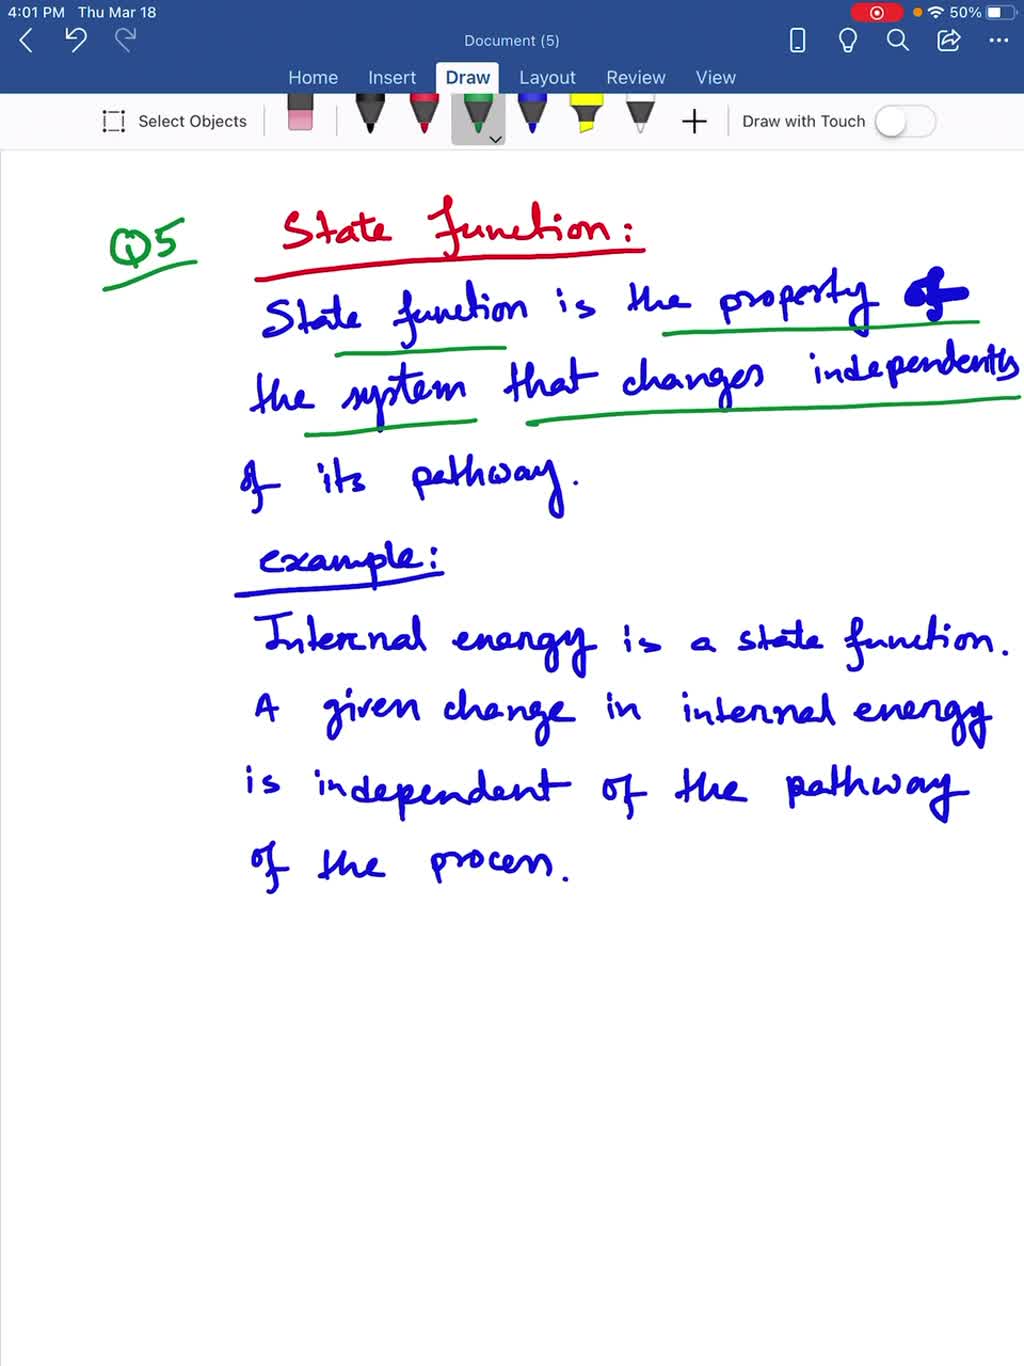 4:01 PM Thu Mar 18
50%
Document (5)
Home Insert Draw Layout Review View
Select Objects
Draw with Touch
Q5 State function:
State function is the property of
the system that changes independently
of its pathway.
example:
Internal energy is a state function.
A given change in internal energy
is independent of the pathway
of the process.